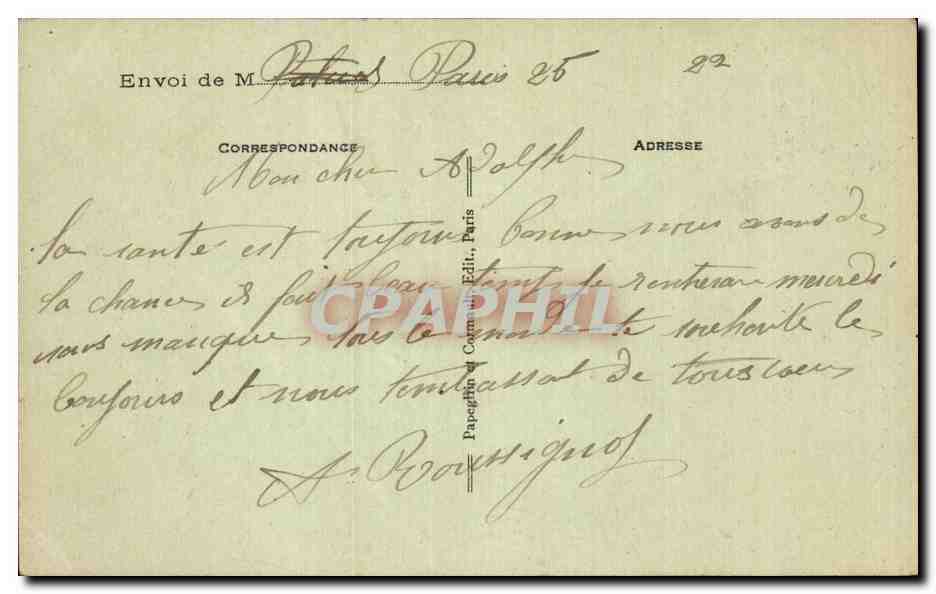 Envoi de M Paris 25 22
CORRESPONDANCE ADRESSE
Mon cher Adolphe
la santé est toujours bonne nous avons de
la chance il fait beau temps je rentrerai mercredi
nous manque tous le monde te souhaite le
bonjours et nous t'embassat de tous coeur
A Roussignol
Papeghin et Cormault, Edit., Paris
CPAPHIL